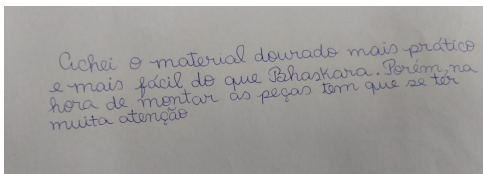 Achei o material dourado mais prático
e mais fácil do que Bháskara. Porém, na
hora de montar as peças tem que se ter
muita atenção